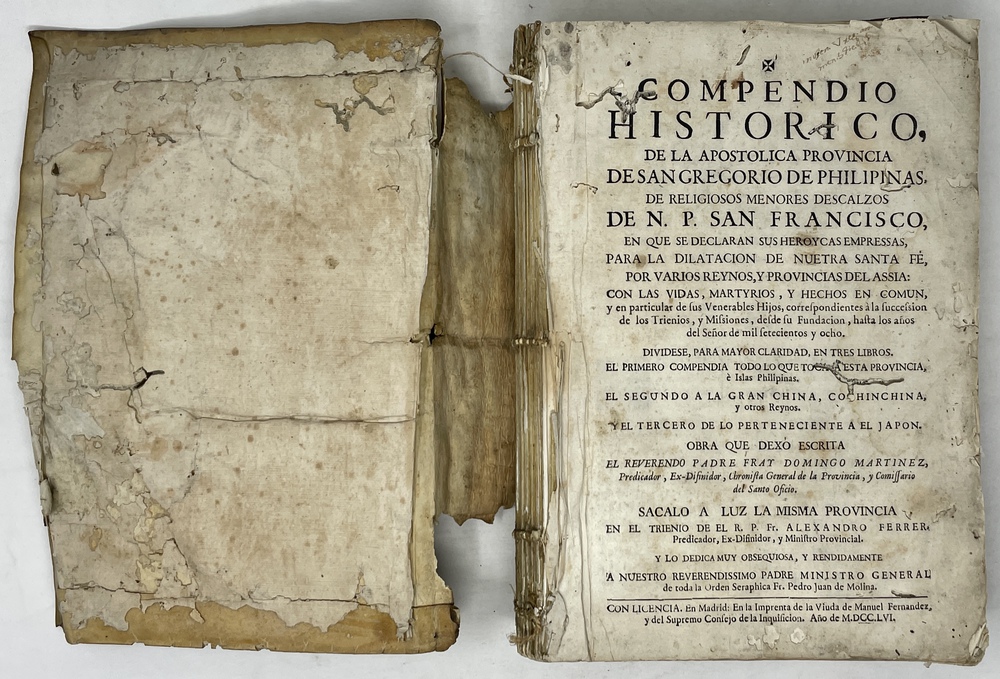 ✠
COMPENDIO
HISTORICO,
DE LA APOSTOLICA PROVINCIA
DE SAN GREGORIO DE PHILIPINAS.
DE RELIGIOSOS MENORES DESCALZOS
DE N. P. SAN FRANCISCO,
EN QUE SE DECLARAN SUS HEROYCAS EMPRESSAS,
PARA LA DILATACION DE NUETRA SANTA FÉ,
POR VARIOS REYNOS, Y PROVINCIAS DEL ASSIA:
CON LAS VIDAS, MARTYRIOS, Y HECHOS EN COMUN,
y en particular de ſus Venerables Hijos, correſpondientes à la ſucceſsion
de los Trienios, y Miſsiones, deſde ſu Fundacion, haſta los años
del Señor de mil ſetecientos y ocho.
DIVIDESE, PARA MAYOR CLARIDAD, EN TRES LIBROS.
EL PRIMERO COMPENDIA TODO LO QUE TOCA A ESTA PROVINCIA,
è Islas Philipinas.
EL SEGUNDO A LA GRAN CHINA, COCHINCHINA,
y otros Reynos.
Y EL TERCERO DE LO PERTENECIENTE A EL JAPON.
OBRA QUE DEXÓ ESCRITA
EL REVERENDO PADRE FRAY DOMINGO MARTINEZ,
Predicador, Ex-Difinidor, Chroniſta General de la Provincia, y Comiſſario
del Santo Oficio.
SACALO A LUZ LA MISMA PROVINCIA
EN EL TRIENIO DE EL R. P. Fr. ALEXANDRO FERRER
Predicador, Ex-Difinidor, y Miniſtro Provincial.
Y LO DEDICA MUY OBSEQUIOSA, Y RENDIDAMENTE
A NUESTRO REVERENDISSIMO PADRE MINISTRO GENERAL
de toda la Orden Seraphica Fr. Pedro Juan de Molina.
CON LICENCIA. En Madrid: En la Imprenta de la Viuda de Manuel Fernandez,
y del Supremo Conſejo de la Inquiſicion. Año de M.DCC.LVI.